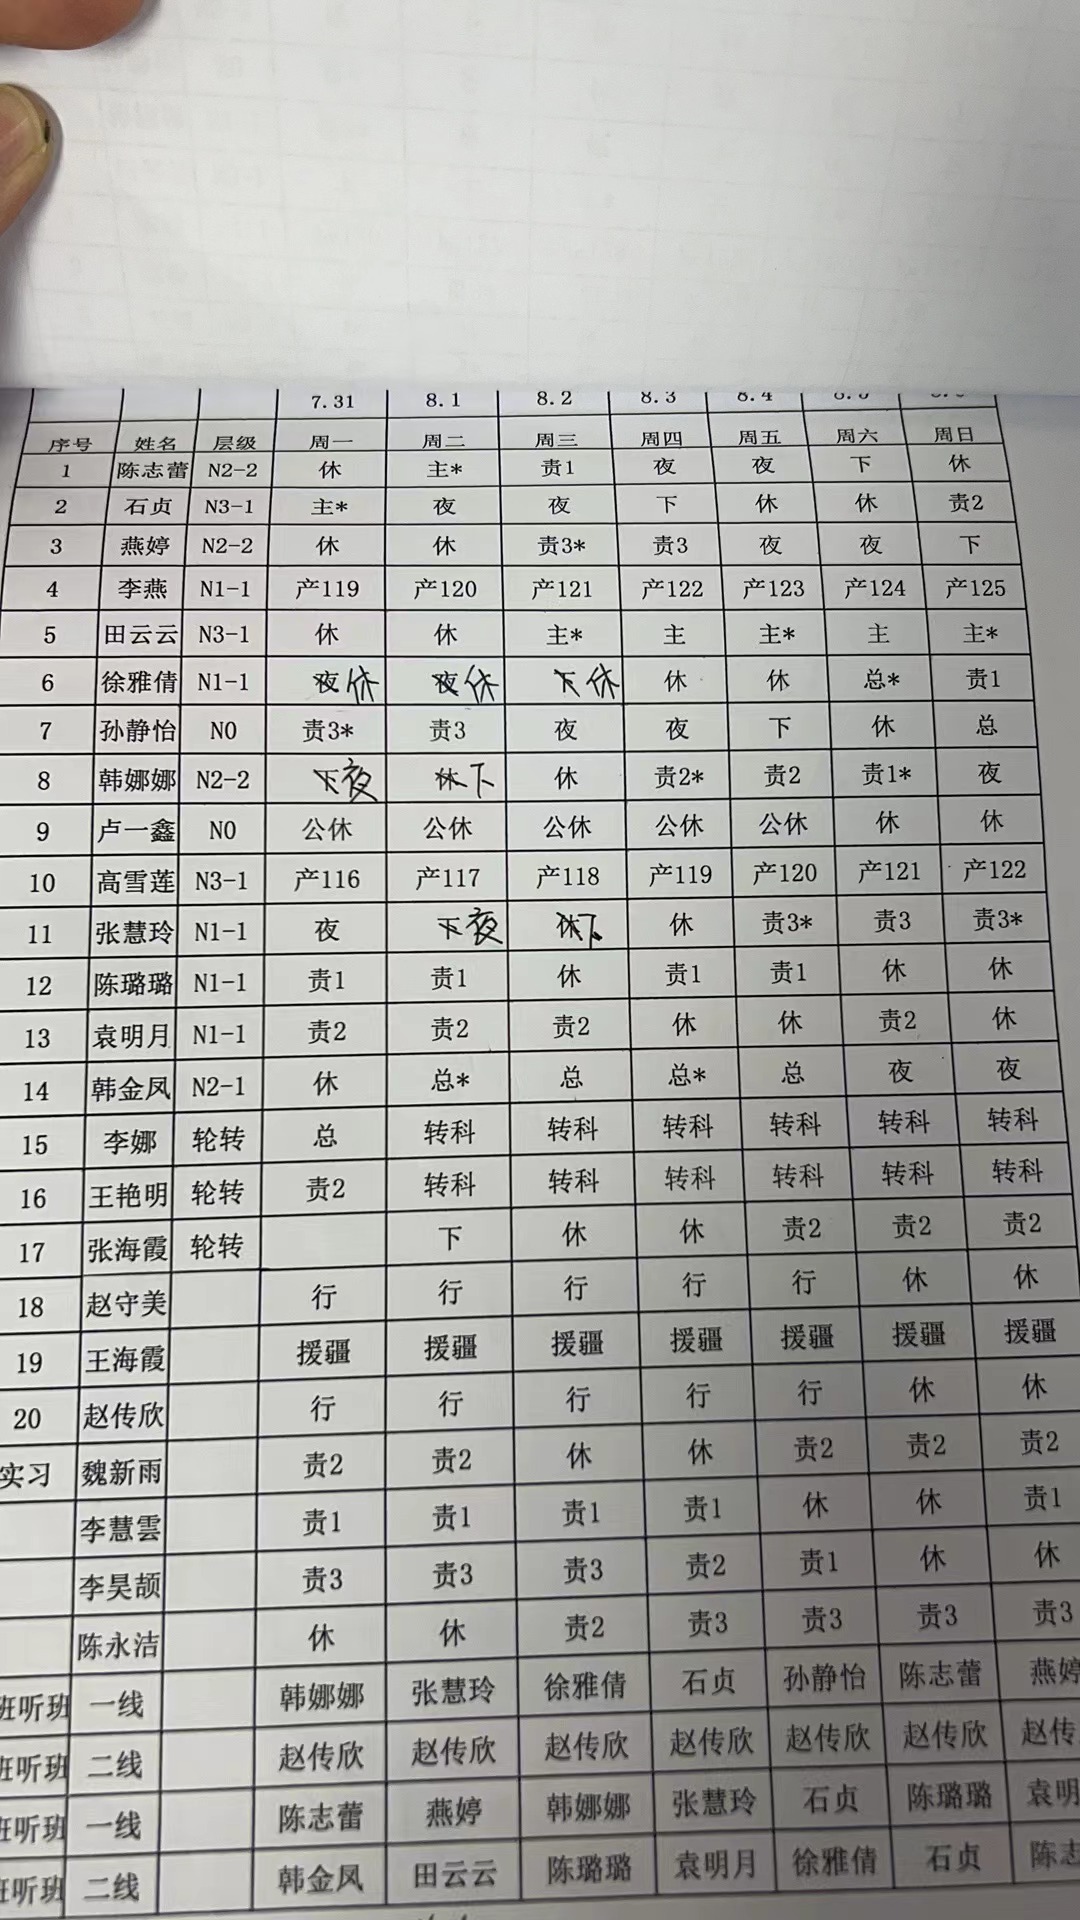 7.31 8.1 8.2 8.3 8.4
序号 姓名 层级 周一 周二 周三 周四 周五 周六 周日
1 陈志蕾 N2-2 休 主* 责1 夜 夜 下 休
2 石贞 N3-1 主* 夜 夜 下 休 休 责2
3 燕婷 N2-2 休 休 责3* 责3 夜 夜 下
4 李燕 N1-1 产119 产120 产121 产122 产123 产124 产125
5 田云云 N3-1 休 休 主* 主 主* 主 主*
6 徐雅倩 N1-1 夜休 夜休 下休 休 休 总* 责1
7 孙静怡 N0 责3* 责3 夜 夜 下 休 总
8 韩娜娜 N2-2 下夜 休下 休 责2* 责2 责1* 夜
9 卢一鑫 N0 公休 公休 公休 公休 公休 休 休
10 高雪莲 N3-1 产116 产117 产118 产119 产120 产121 产122
11 张慧玲 N1-1 夜 下夜 休下 休 责3* 责3 责3*
12 陈璐璐 N1-1 责1 责1 休 责1 责1 休 休
13 袁明月 N1-1 责2 责2 责2 休 休 责2 休
14 韩金凤 N2-1 休 总* 总 总* 总 夜 夜
15 李娜 轮转 总 转科 转科 转科 转科 转科 转科
16 王艳明 轮转 责2 转科 转科 转科 转科 转科 转科
17 张海霞 轮转 下 休 休 责2 责2 责2
18 赵守美 行 行 行 行 行 休 休
19 王海霞 援疆 援疆 援疆 援疆 援疆 援疆 援疆
20 赵传欣 行 行 行 行 行 休 休
实习 魏新雨 责2 责2 休 休 责2 责2 责2
李慧雲 责1 责1 责1 责1 休 休 责1
李昊颉 责3 责3 责3 责2 责1 休 休
陈永洁 休 休 责2 责3 责3 责3 责3
班听班 一线 韩娜娜 张慧玲 徐雅倩 石贞 孙静怡 陈志蕾 燕婷
班听班 二线 赵传欣 赵传欣 赵传欣 赵传欣 赵传欣 赵传欣 赵传
班听班 一线 陈志蕾 燕婷 韩娜娜 张慧玲 石贞 陈璐璐 袁明
班听班 二线 韩金凤 田云云 陈璐璐 袁明月 徐雅倩 石贞 陈志